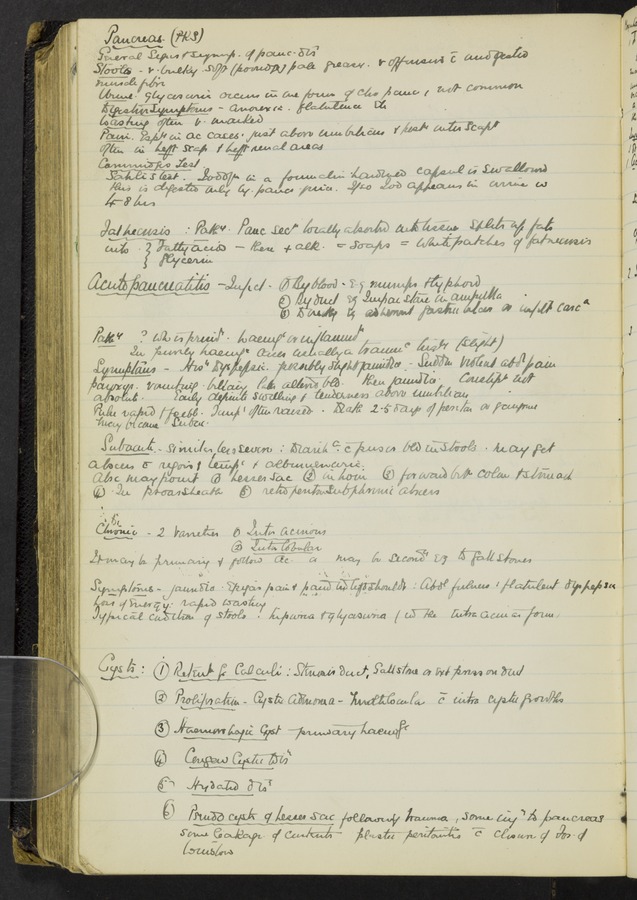 Pancreas (PKS)
General Signs & symp. of panc. dis
Stools - v. bulky soft (porridgy) pale greasy. & offensive c undigested
muscle fibre
Urine. Glycosuria occurs in one form of chr panc, not common
Digestive symptoms - anorexia. flatulence etc
Wasting often v. marked
Pain. Esp in ac cases. just above umbilicus & inter scap
often in left scap & left renal areas
Test
Sahli's test. Iodof in a formalin hardened capsul is swallowed
this is digested only by panc juice. If so Iod appears in urine in
4-8 hrs
Fat necrosis : Path. Panc Sec locally absorbd into tissue splits up fats
into } Fatty acid - then + alk. = soaps = white patches of fat necrosis
} Glycerin
Acute pancreatitis - Infect - ① By blood - Eg mumps & typhoid
② By duct eg Impac stone in ampulla
③ Directly by adherent gastric ulcer or
Path ? who is primy. haemg or inflammn
In purely haemg ones usually a traumc histy (slight)
Symptoms - Histy Dyspepsia. possibly slight jaundice - Sudden violent abdl pain
paroxys. vomiting - biliary later altered bld. then jaundice. Constipt not
absolute. Early definite swelling & tenderness above umbilicus
Pulse rapid & feeble. Temp often raised. Death 2-5 days of periton or gangrene
may become Subac.
Subacute - Similar less severe : Diarrh c pus or bld in stools. may get
abscess c rigors & temp & albuminuria.
Absc may point ① Lesser sac ② in loin ③ forward betw colon & stomach
④ In psoas sheath ⑤ retroperiton subphrenic abscess
Chronic - 2 Varieties ① Inter acinous
② Inter lobular
It may be primary & follow Ac. or may be Second eg to gall stones
Symptoms - jaundice - Epigas pain & pain in left shoulder : Abdl fulness & flatulent dyspepsia
loss of Energy. rapid wasting
Typical condition of stools. lipuria & glycosuria (in the intra acinar form)
Cysts : ① Retent fr Calculi : Stenosis duct, Gallstone or ext press on duct
② Proliferation - Cystic Adenoma - multilocular c intra cystic growths
③ Haemorrhagic Cyst - primary haemg
④ Congen Cystic Dis
⑤ Hydatid dis
⑥ Pseudo cysts of lesser sac following trauma, some inj to pancreas
some leakage of contents plastic peritonitis c closure of For. of
Winslow